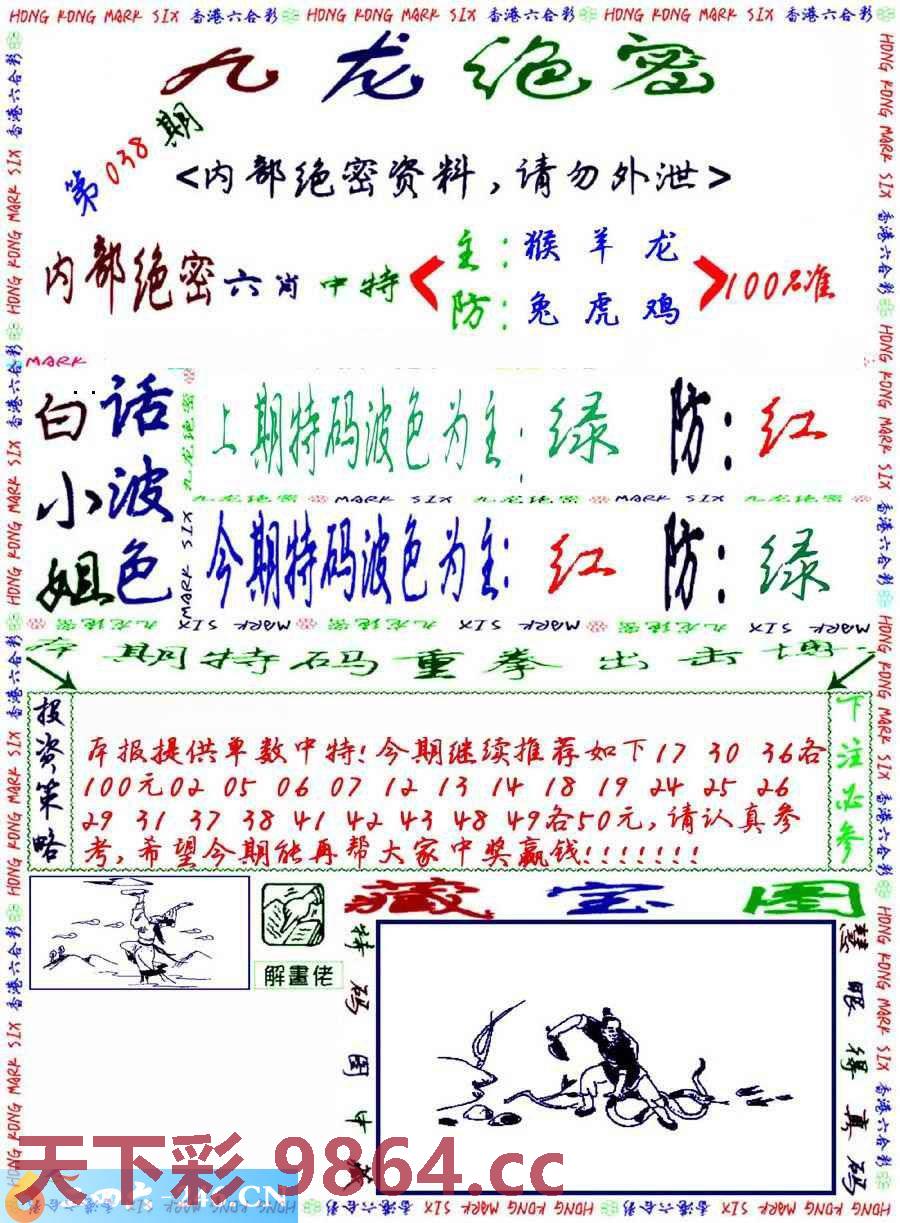 HONG KONG MARK SIX 香港六合彩 HONG KONG MARK SIX 香港六合彩 HONG KONG MARK SIX 香港六合彩
九龙绝密
第038期
<内部绝密资料,请勿外泄>
内部绝密六肖中特
主:猴羊龙
防:兔虎鸡
100%准
MARK
白小姐
话波色
上期特码波色为主:绿 防:红
九龙绝密 MARK SIX 九龙绝密 MARK SIX 九龙绝密
今期特码波色为主:红 防:绿
九龙绝密 MARK SIX 九龙绝密 MARK SIX 九龙绝密 MARK SIX
本期特码重拳出击
投资策略
本报提供单数中特!今期继续推荐如下17 30 36各
100元02 05 06 07 12 13 14 18 19 24 25 26
29 31 37 38 41 42 43 48 49各50元,请认真参
考,希望今期能再帮大家中奖赢钱!!!!!!!
下注必参
藏宝图
解畫佬
特码图中藏
慧眼得真码
天下彩.9864.cc